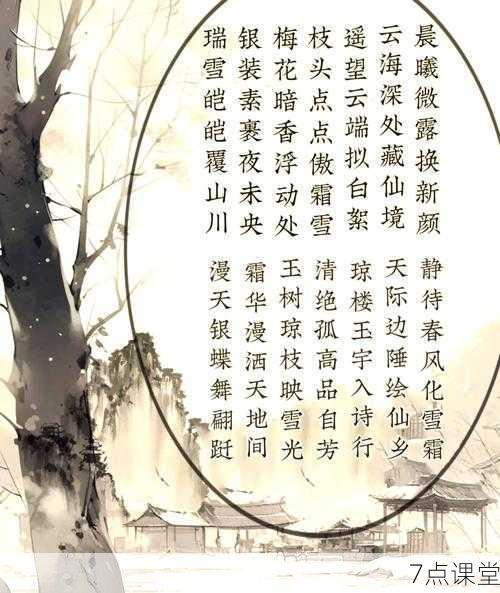 瑞雪皑皑覆山川
漫天银蝶舞翩跹
银装素裹夜未央
霜华漫洒天地间
梅花暗香浮动处
玉树琼枝映雪光
枝头点点傲霜雪
清绝孤高品自芳
遥望云端拟白絮
琼楼玉宇入诗行
云海深处藏仙境
天际边陲绘仙乡
晨曦微露换新颜
静待春风化雪霜
7点课堂